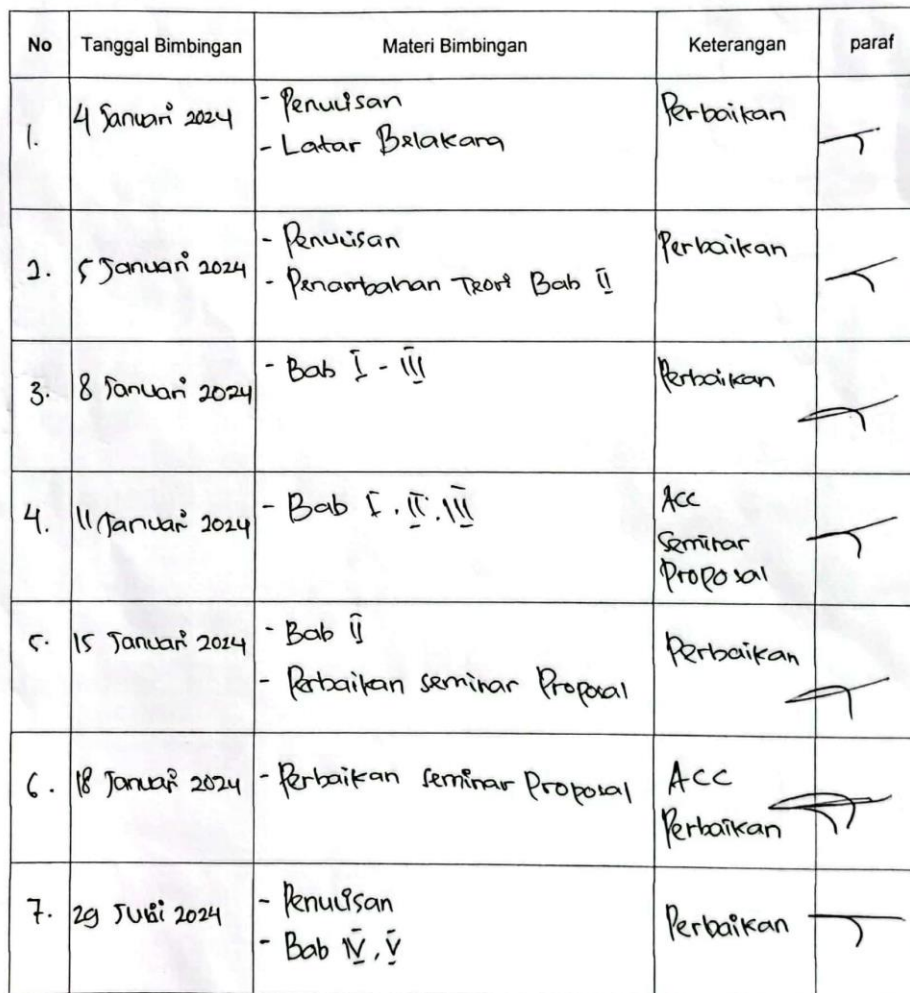 No Tanggal Bimbingan Materi Bimbingan Keterangan paraf
1. 4 Januari 2024 - Penulisan Perbaikan
- Latar Belakang
2. 5 Januari 2024 - Penulisan Perbaikan
- Penambahan Teori Bab II
3. 8 Januari 2024 - Bab I - III Perbaikan
4. 11 Januari 2024 - Bab I . II . III ACC
Seminar
Proposal
5. 15 Januari 2024 - Bab II Perbaikan
- Perbaikan seminar Proposal
6. 18 Januari 2024 - Perbaikan seminar Proposal ACC
Perbaikan
7. 29 Juli 2024 - Penulisan Perbaikan
- Bab IV, V